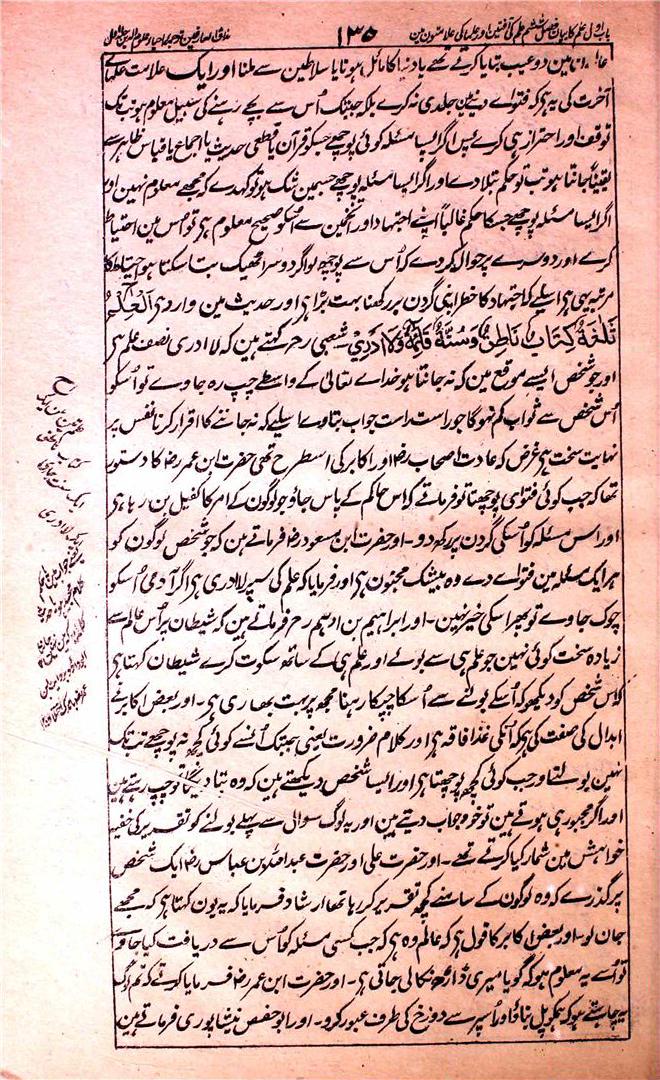 باب اول علم کا بیان فصل ششم علم کی آفتین اور علما کی علامتون مین
۱۳۵
مذاق العارفین ترجمہ احیاء علوم الدین جلد اول
مین دو عیب بتایا کرتے تھے یا دنیا کا مائل ہونا یا سلاطین سے ملنا اور ایک علامت علمای
آخرت کی یہ ہی کہ فتوے دینے مین جلدی نہ کرے بلکہ جبتک اُس سے بچے رہنے کی سبیل معلوم ہو تب تک
توقف اور احتراز ہی کرے پس اگر ایسا مسئلہ کوئی پوچھے جسکو قرآن یا قطعی حدیث یا اجماع یا قیاس ظاہر سے
یقیناً جانتا ہو تب تو حکم بتلا دے اور اگر ایسا مسئلہ پوچھے جسمین شک ہو تو کہدے کہ مجھے معلوم نہین اور
اگر ایسا مسئلہ پوچھے جسکا حکم غالباً اپنے اجتہاد اور تخمین سے اُسکو صحیح معلوم ہی تو اُس مین احتیاط
کرے اور دوسرے پر حوالہ کر دے کہ اُس سے پوچھو اگر دوسرا ٹھیک بتا سکتا ہو احتیاط کا
مرتبہ یہی ہی اسلیے کہ اجتہاد کا خطر اپنی گردن پر رکھنا بہت بڑا ہی اور حدیث مین وارد ہی اَلْعِلْمُ
ثَلٰثَۃٌ کِتَابٌ نَاطِقٌ وَسُنَّۃٌ قَائِمَۃٌ وَلَا اَدْرِیْ شعبی رح کہتے ہین کہ لا ادری نصف علم ہی
اور جو شخص ایسے موقع مین کہ نہ جانتا ہو خداے تعالی کے واسطے چپ رہ جاوے تو اُسکو
اُس شخص سے ثواب کم نہوگا جو راست راست جواب بتاوے اسلیے کہ نہ جاننے کا اقرار کرنا نفس پر
نہایت سخت ہی غرض کہ عادت اصحاب رض اور اکابر کی اسطرح تھی حضرت ابن عمر رض کا دستور
تھا کہ جب کوئی فتوای پوچھتا تو فرماتے کہ اس حاکم کے پاس جاؤ جو لوگون کے امر کا کفیل بن رہا ہی
اور اس مسئلہ کو اُسکی گردن پر رکھدو۔ اور حضرت ابن مسعود رض فرماتے ہین کہ جو شخص لوگون کو
ہر ایک مسئلہ مین فتواے دے وہ بیشک مجنون ہی اور فرمایا کہ علم کی سپر لا ادری ہی اگر آدمی اُسکو
چوک جاوے تو پھر اسکی خیر نہین۔ اور ابراہیم بن ادہم رح فرماتے ہین کہ شیطان پر اُس عالم سے
زیادہ سخت کوئی نہین جو علم ہی سے بولے اور علم ہی کے ساتھ سکوت کرے شیطان کہتا ہی
کہ اس شخص کو دیکھو کہ اُسکے بولنے سے اُسکا چپکا رہنا مجھ پر بہت بھاری ہی۔ اور بعض اکابر نے
ابدال کی صفت کی ہی کہ اُنکی غذا فاقہ ہی اور کلام ضرورت یعنی جبتک اُنسے کوئی کچھ نہ پوچھے تب تک
نہین بولتے اور جب کوئی کچھ پوچھتا ہی اور ایسا شخص دیکھتے ہین کہ وہ بتا دیگا تو چپ رہتے ہین
اور اگر مجبور ہی ہوتے ہین تو خود جواب دیتے ہین اور یہ لوگ سوال سے پہلے بولنے کو تقریر کی خفیہ
خواہش مین شمار کیا کرتے تھے۔ اور حضرت علی اور حضرت عبداللہ بن عباس رض ایک شخص
پر گذرے کہ وہ لوگون کے سامنے کچھ تقریر کر رہا تھا ارشاد فرمایا کہ یہ یون کہتا ہی کہ مجھے
جان لو۔ اور بعض اکابر کا قول ہی کہ عالم وہ ہی کہ جب کسی مسئلہ کو اُس سے دریافت کیا جاوے
تو اُسے یہ معلوم ہو کہ گویا میری ڈاڑھ نکالی جاتی ہی۔ اور حضرت ابن عمر رض فرمایا کرتے کہ تم لوگ
یہ چاہتے ہو کہ ہمکو پل بناؤ اور اُسپر سے دوزخ کی طرف عبور کرو۔ اور ابو حفص نیشاپوری فرماتے ہین